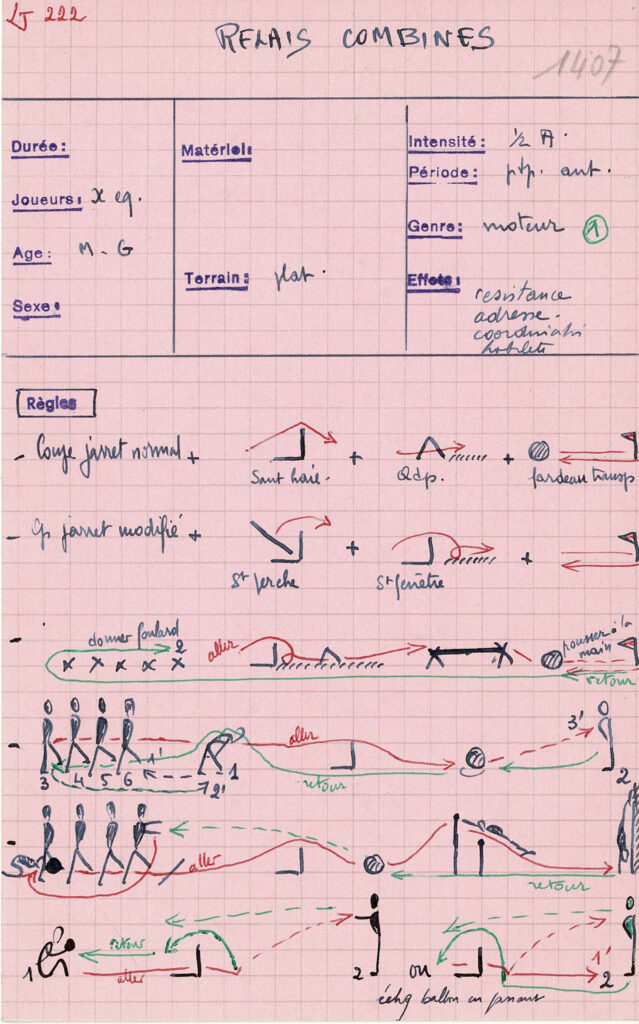 LJ 222
RELAIS COMBINES
1407
Durée:
Matériel:
Intensité: ½ A.
Période: ptp. aut.
Joueurs: X eq.
Genre: moteur 1
Age: M - G
Terrain: plat.
Effets: resistance
adresse.
coordinati
habileté
Sexe:
Règles
- Coupe jarret normal + + +
Saut haie. Qdp. fardeau transp
- Cp jarret modifié + + +
St perche St fenêtre
- donner foulard 2 aller pousser à la
main
x x x x x
retour
- aller 3'
1'
3 4 5 6 2' 1 retour 2
- 5 aller
retour
retour
1 aller 2 ou 1' 2
ballon en passant